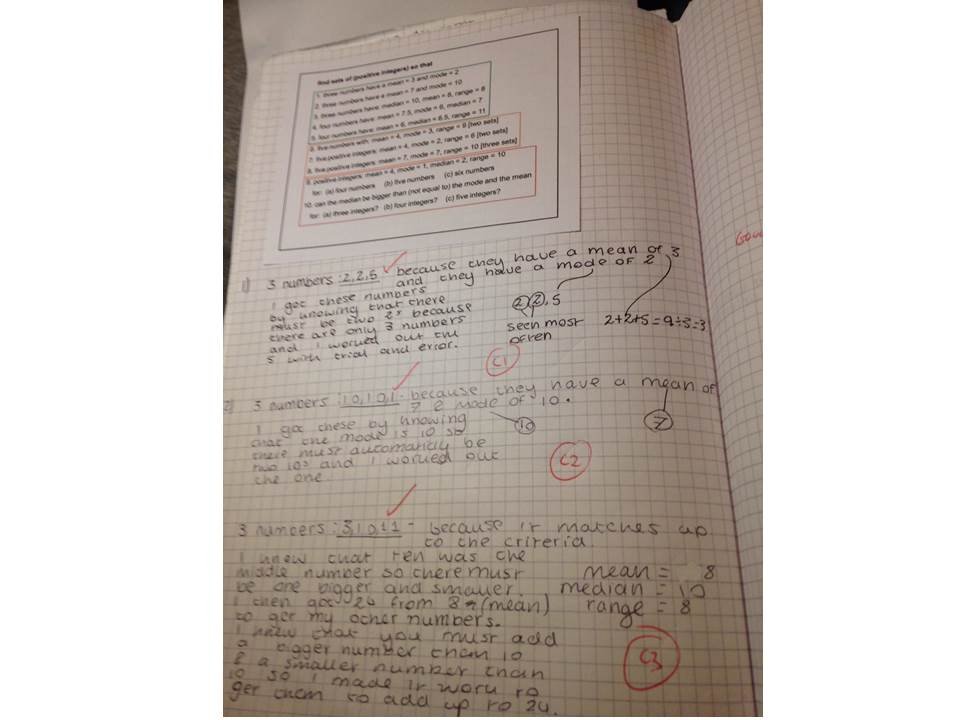 find sets of (positive integers) so that
1. three numbers have a mean = 3 and mode = 2
2. three numbers have a mean = 7 and mode = 10
3. three numbers have: median = 10, mean = 8, range = 8
4. four numbers have: mean = 7.5, mode = 6, median = 7
5. four numbers have: mean = 6, median = 6.5, range = 11
6. five numbers with: mean = 4, mode = 3, range = 9 [two sets]
7. five positive integers: mean = 4, mode = 2, range = 6 [two sets]
8. five positive integers: mean = 7, mode = 7, range = 10 [three sets]
9. positive integers: mean = 4, mode = 1, median = 2, range = 10
for: (a) four numbers (b) five numbers (c) six numbers
10. can the median be bigger than (not equal to) the mode and the mean
for: (a) three integers? (b) four integers? (c) five integers?
1) 3 numbers: 2,2,5 because they have a mean of 3
and they have a mode of 2
I got these numbers
by knowing that there
must be two 2s because
there are only 3 numbers
and I worked out the
5 with trial and error.
2, 2, 5
seen most
often
2+2+5=9÷3=3
C1
2) 3 numbers: 10,10,1 - because they have a mean of
7 & mode of 10.
I got these by knowing
that the mode is 10 so
there must be
two 10s and I worked out
the one
10
7
C2
3 numbers: 3,10,11 - because it matches up
to the criteria.
I knew that ten was the
middle number so there must
be one bigger and smaller.
I then got 24 from (mean)
to get my other numbers.
I knew that you must add
a bigger number than 10
& a smaller number than
10 so I made it work to
get them to add up to 24.
mean = 8
median = 10
range = 8
C3